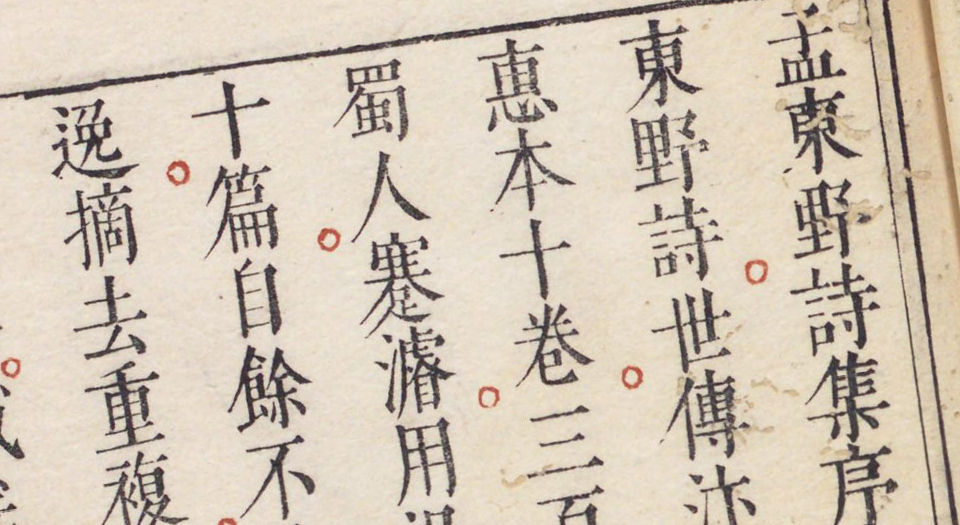 孟東野詩集序
東野詩世傳汴
惠本十卷三百
蜀人蹇濬用
十篇自餘不
逸摘去重複